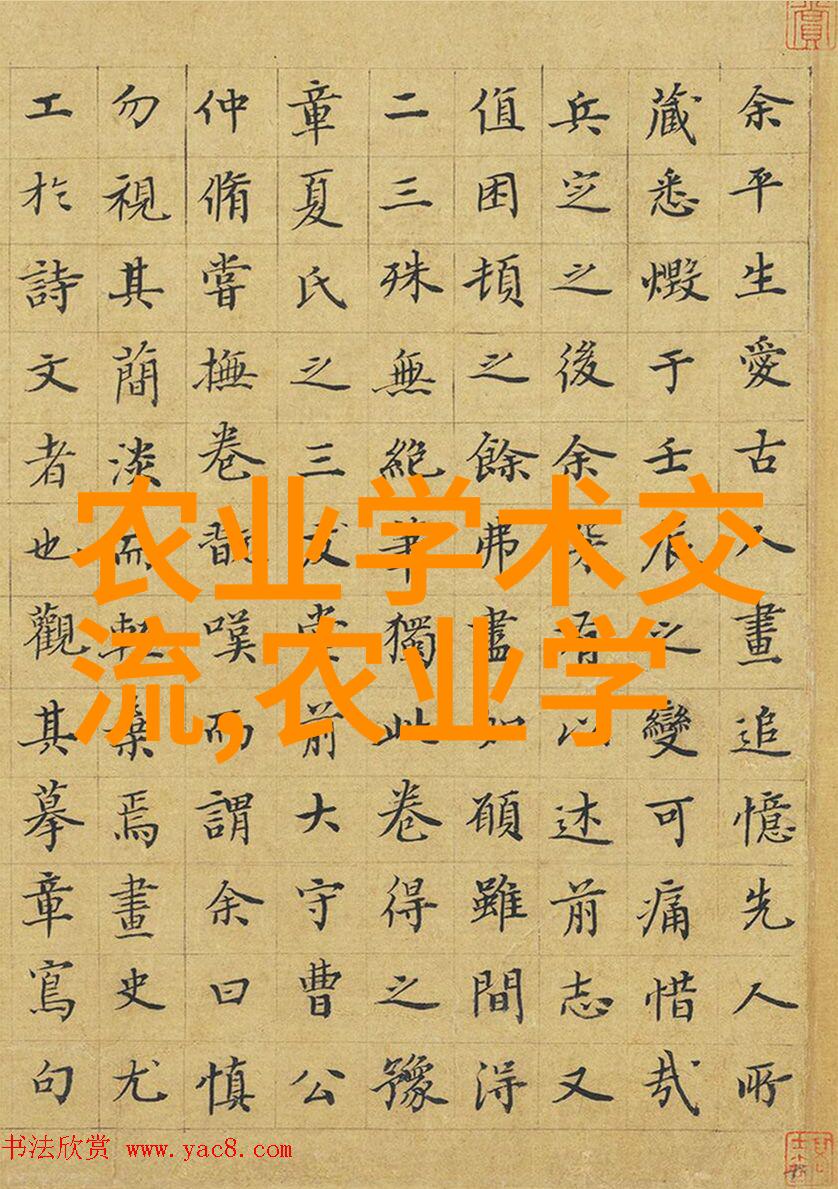 余平生愛古人畫追憶先人所
藏悉燬于壬辰之變可痛惜哉
兵㝎之後余有以述前志又
值困頓之餘弗盡如願雖間得
二三殊無絶筆獨此卷得之豫
章夏氏之三友堂前大守曹公
仲脩嘗撫卷嘆而謂余曰慎
勿視其蕳淡而輕棄焉畫史尤
工於詩文者也觀其摹章寫句
农业学术交
流,农业学
书法欣赏 www.yac8.com